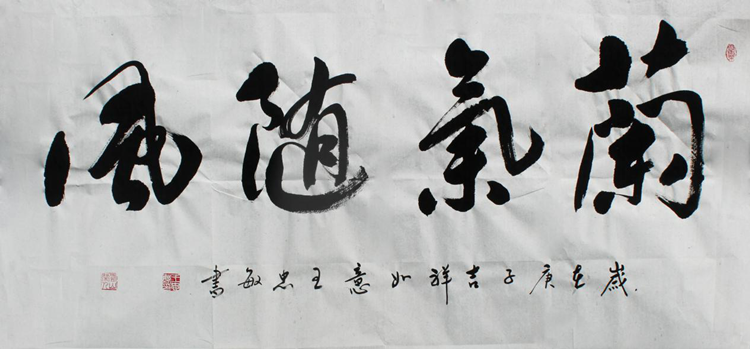 蘭氣随風
歲在庚子吉祥如意王忠敏書